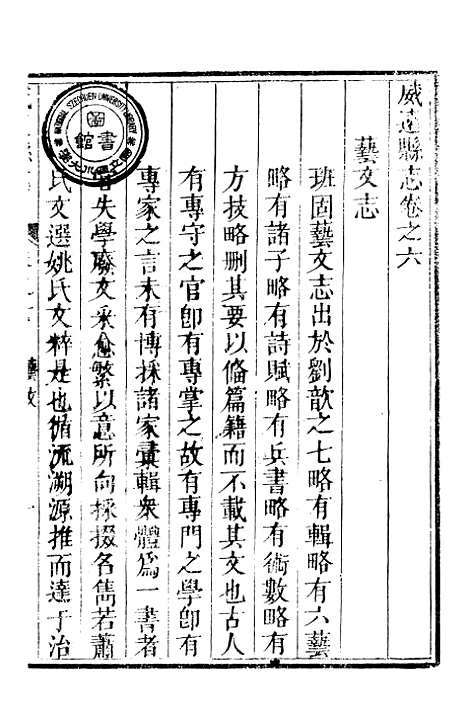 威遠縣志卷之六
藝文志
班固藝文志出於劉歆之七略有輯略有六藝
略有諸子略有詩賦略有兵書略有術數略有
方技略刪其要以俻篇籍而不載其文也古人
有專守之官卽有專掌之故有專門之學卽有
專家之言未有博採諸家彚輯衆體爲一書者
失學廢文采愈繁以意所向採掇名雋若蕭
氏文選姚氏文粹是也循流溯源推而達于治
書館